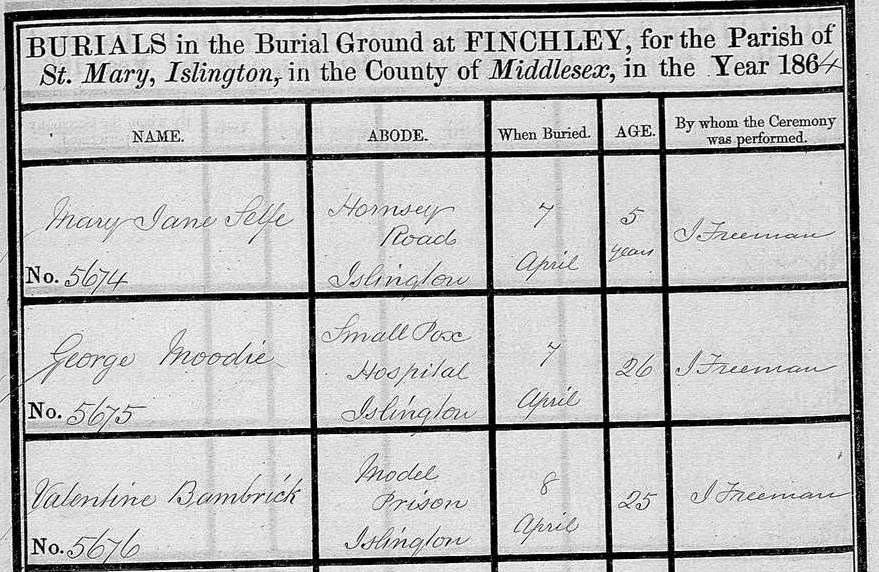 BURIALS in the Burial Ground at FINCHLEY, for the Parish of
St. Mary, Islington, in the County of Middlesex, in the Year 1864
NAME.
ABODE.
When Buried.
AGE.
By whom the Ceremony
was performed.
Mary Jane Selfe
No. 5674
Hornsey
Road
Islington
7
April
5
years
J Freeman
George Moodie
No. 5675
Small Pox
Hospital
Islington
7
April
26
J Freeman
Valentine Bambrick
No. 5676
Model
Prison
Islington
8
April
25
J Freeman